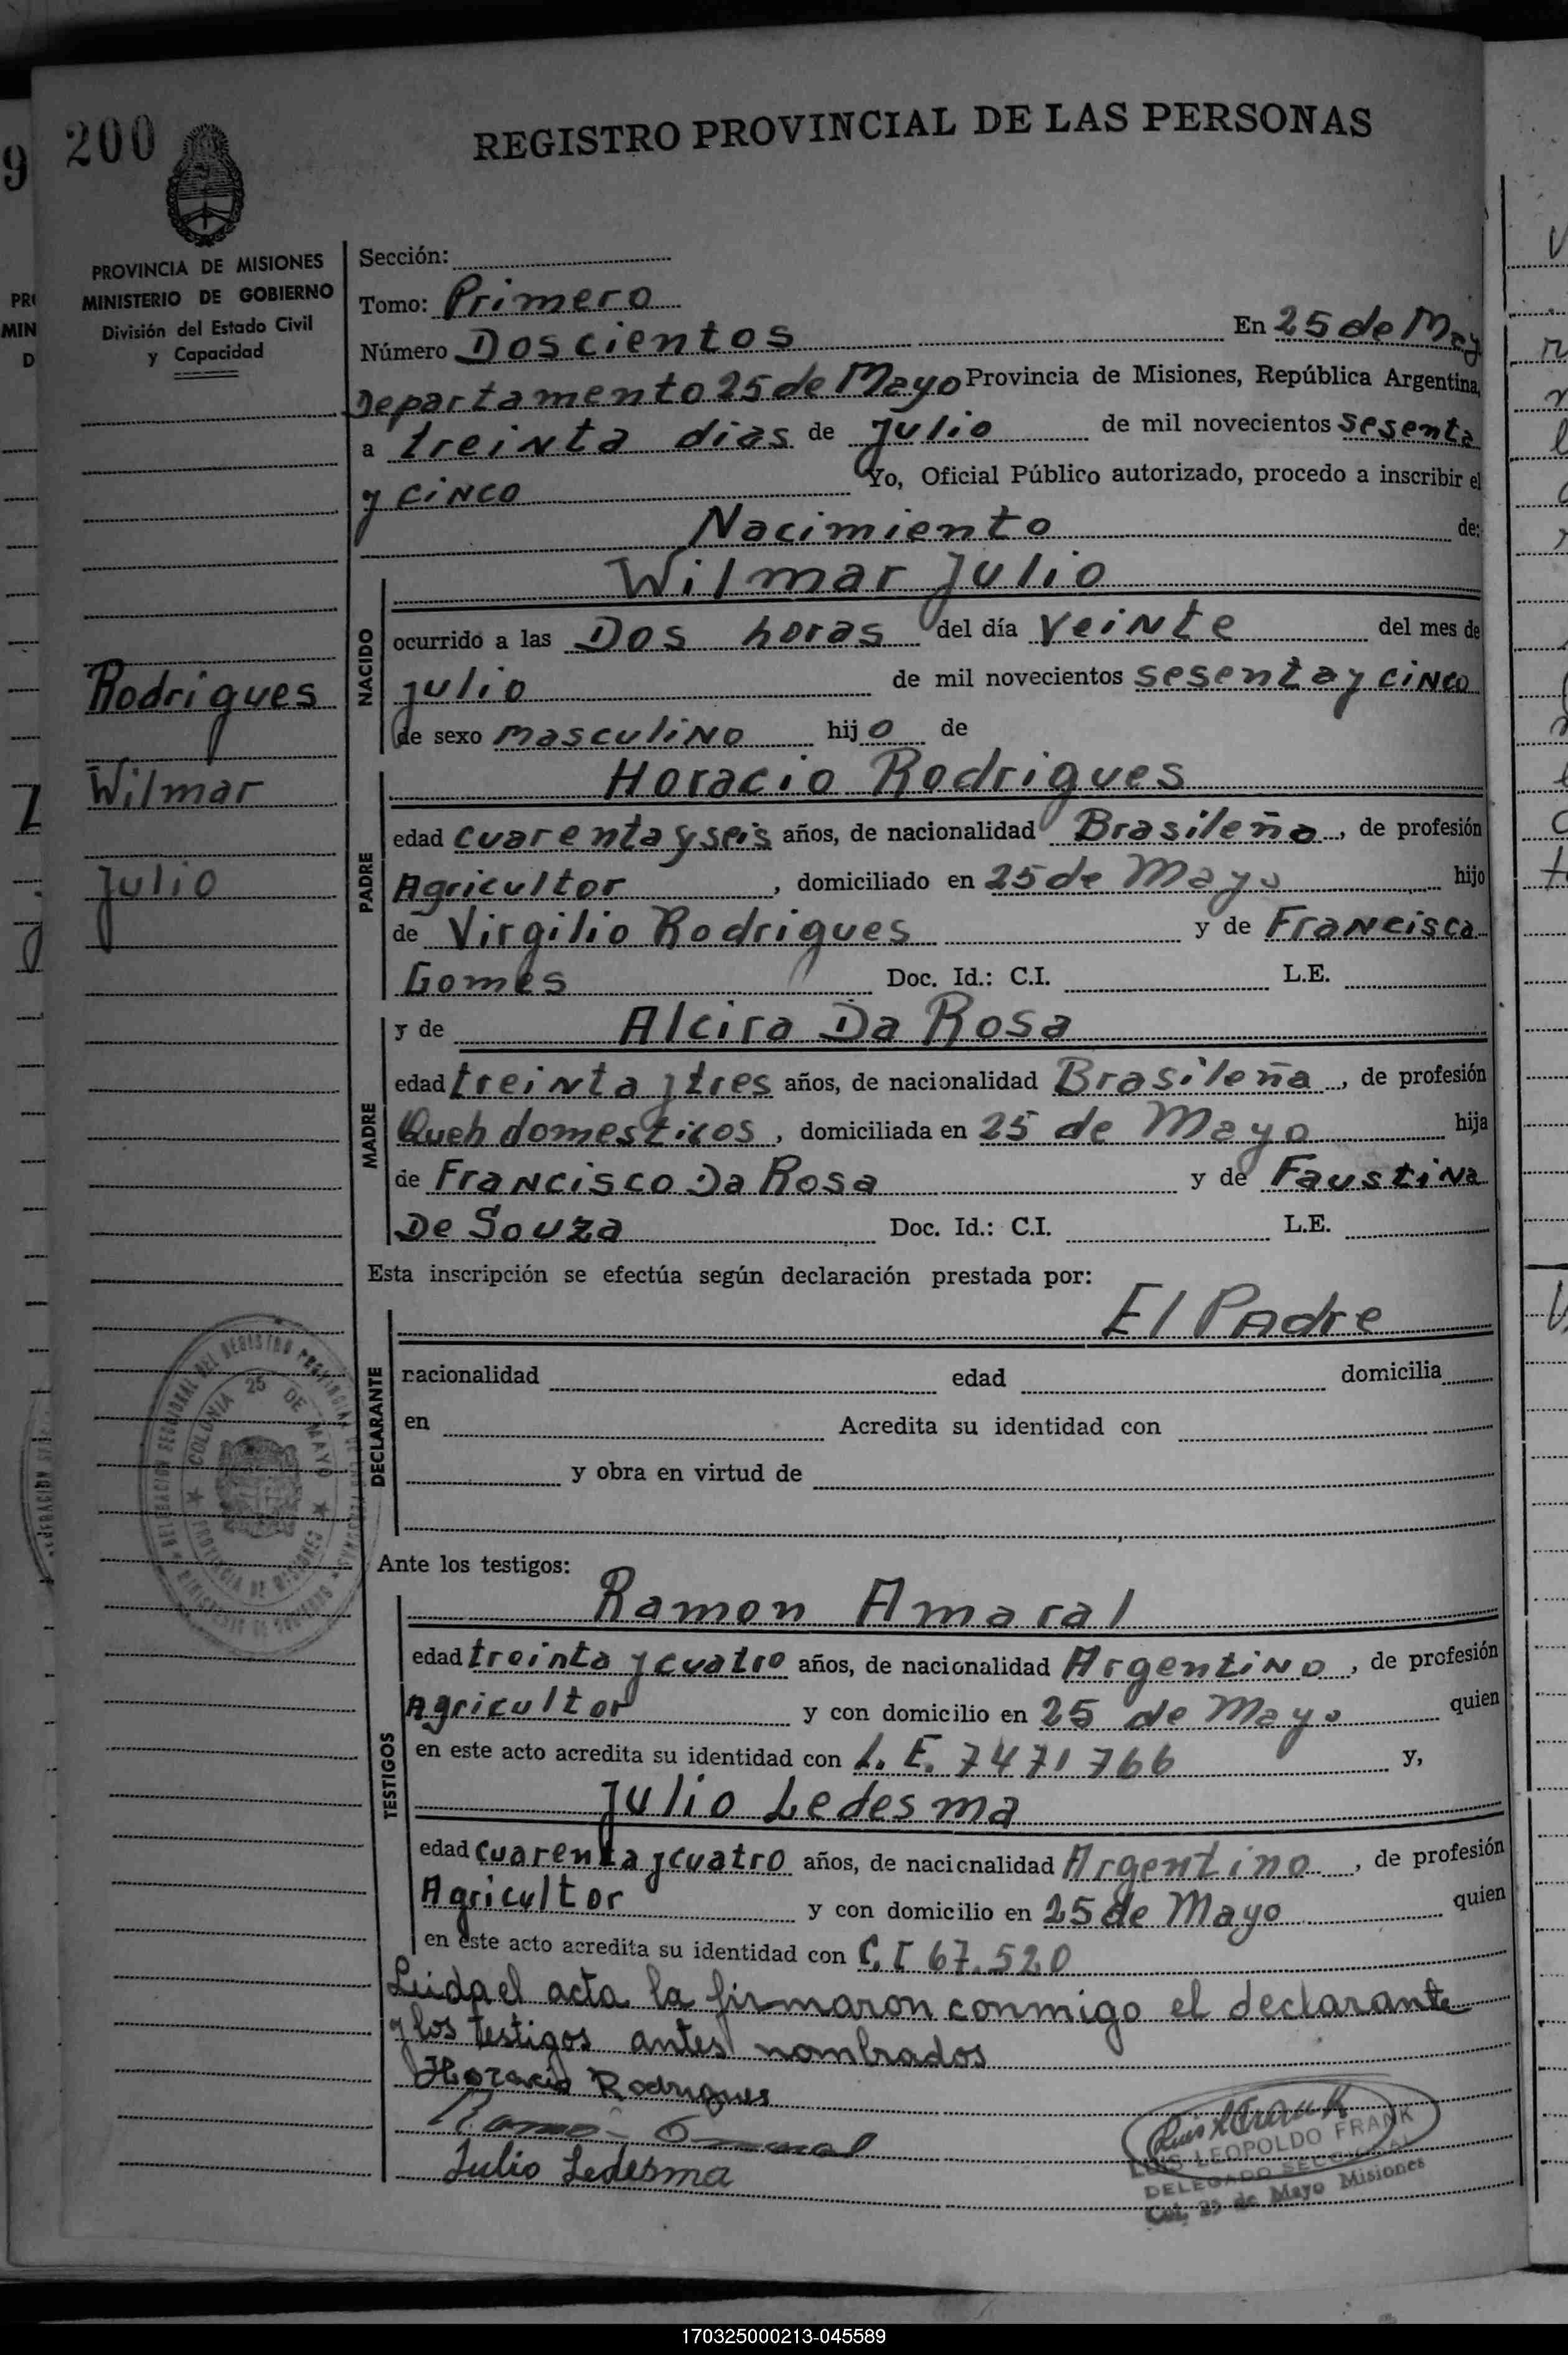 200
REGISTRO PROVINCIAL DE LAS PERSONAS
PROVINCIA DE MISIONES
MINISTERIO DE GOBIERNO
División del Estado Civil
y Capacidad
Sección:
Tomo: Primero
Número Doscientos En 25 de May
Departamento 25 de Mayo Provincia de Misiones, República Argentina,
a treinta dias de Julio de mil novecientos sesenta
y cinco Yo, Oficial Público autorizado, procedo a inscribir el
Nacimiento de:
Rodrigues
Wilmar
Julio
NACIDO
Wilmar Julio
ocurrido a las Dos horas del día veinte del mes de
julio de mil novecientos sesenta y cinco
de sexo masculino hijo de
PADRE
Horacio Rodrigues
edad cuarenta y seis años, de nacionalidad Brasileño, de profesión
Agricultor, domiciliado en 25 de Mayo hijo
de Virgilio Rodrigues y de Francisca
Gomes Doc. Id.: C.I. L.E.
MADRE
y de Alcira Da Rosa
edad treinta y tres años, de nacionalidad Brasileña, de profesión
Queh domesticos, domiciliada en 25 de Mayo hija
de Francisco Da Rosa y de Faustina
De Souza Doc. Id.: C.I. L.E.
Esta inscripción se efectúa según declaración prestada por:
DECLARANTE
El Padre
nacionalidad edad domicilia
en Acredita su identidad con
y obra en virtud de
DELEGACION SECCIONAL DEL REGISTRO PROVINCIAL DE LAS PERSONAS
MINISTERIO DE GOBIERNO
COLONIA 25 DE MAYO
PROVINCIA DE MISIONES
Ante los testigos:
TESTIGOS
Ramon Amaral
edad treinta y cuatro años, de nacionalidad Argentino, de profesión
Agricultor y con domicilio en 25 de Mayo quien
en este acto acredita su identidad con L. E. 7471766 y,
Julio Ledesma
edad cuarenta y cuatro años, de nacicnalidad Argentino, de profesión
Agricultor y con domicilio en 25 de Mayo quien
en este acto acredita su identidad con C. I 67.520
Leida el acta la firmaron conmigo el declarante
y los testigos antes nombrados
Horacio Rodrigues
Julio Ledesma
LUIS LEOPOLDO FRANK
DELEGADO SECCIONAL
Col. 25 de Mayo Misiones
170325000213-045589